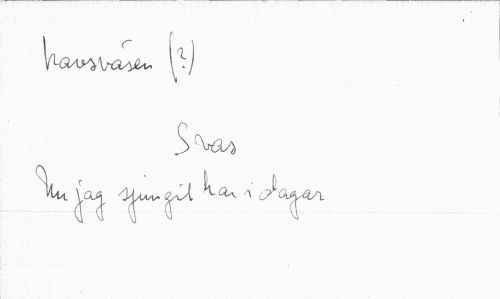 havsväsen (?)
Svas
Nu jag sjungit har i dagar